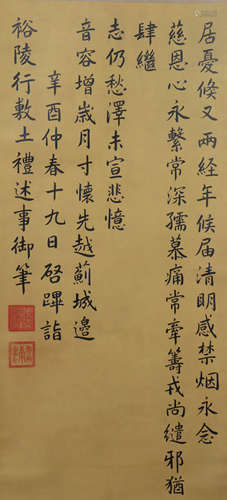 居憂倏又兩經年候届清明感禁烟永念
慈恩心永繫常深孺慕痛常牽籌戎尚缱邪猶
肆繼
志仍愁澤未宣悲憶
音容增歲月寸懷先越薊城邊
辛酉仲春十九日啓蹕詣
裕陵行敷土禮述事御筆